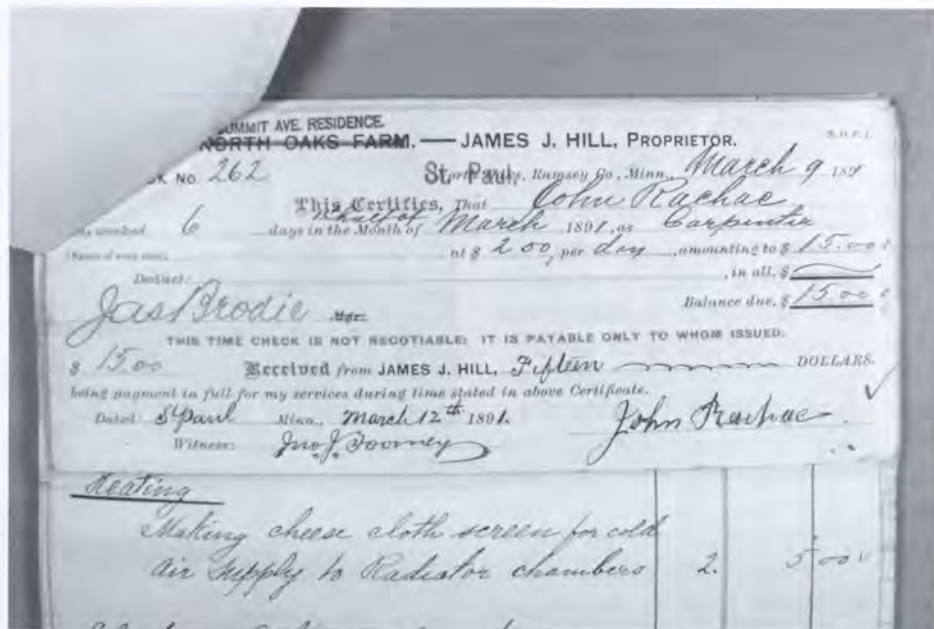 SUMMIT AVE. RESIDENCE.
NORTH OAKS FARM. — JAMES J. HILL, PROPRIETOR.
No. 262 St. Paul, Ramsey Co., Minn., March 9 189
This Certifies, That John Rachac
worked 6 days in the Month of March 1891, as Carpenter
at $ 2 00 per day, amounting to $ 15.00
Deduct: , in all, $
Jas Brodie Mgr. Balance due, $ 15 00
THIS TIME CHECK IS NOT NEGOTIABLE; IT IS PAYABLE ONLY TO WHOM ISSUED.
$ 15.00 Received from JAMES J. HILL, Fifteen DOLLARS.
being payment in full for my services during time stated in above Certificate.
Dated St Paul Minn., March 12th 1891. John Rachac
Witness: Jno. J. Toomey
Heating
Making cheese cloth screen for cold
air supply to Radiator chambers 2. 5 00